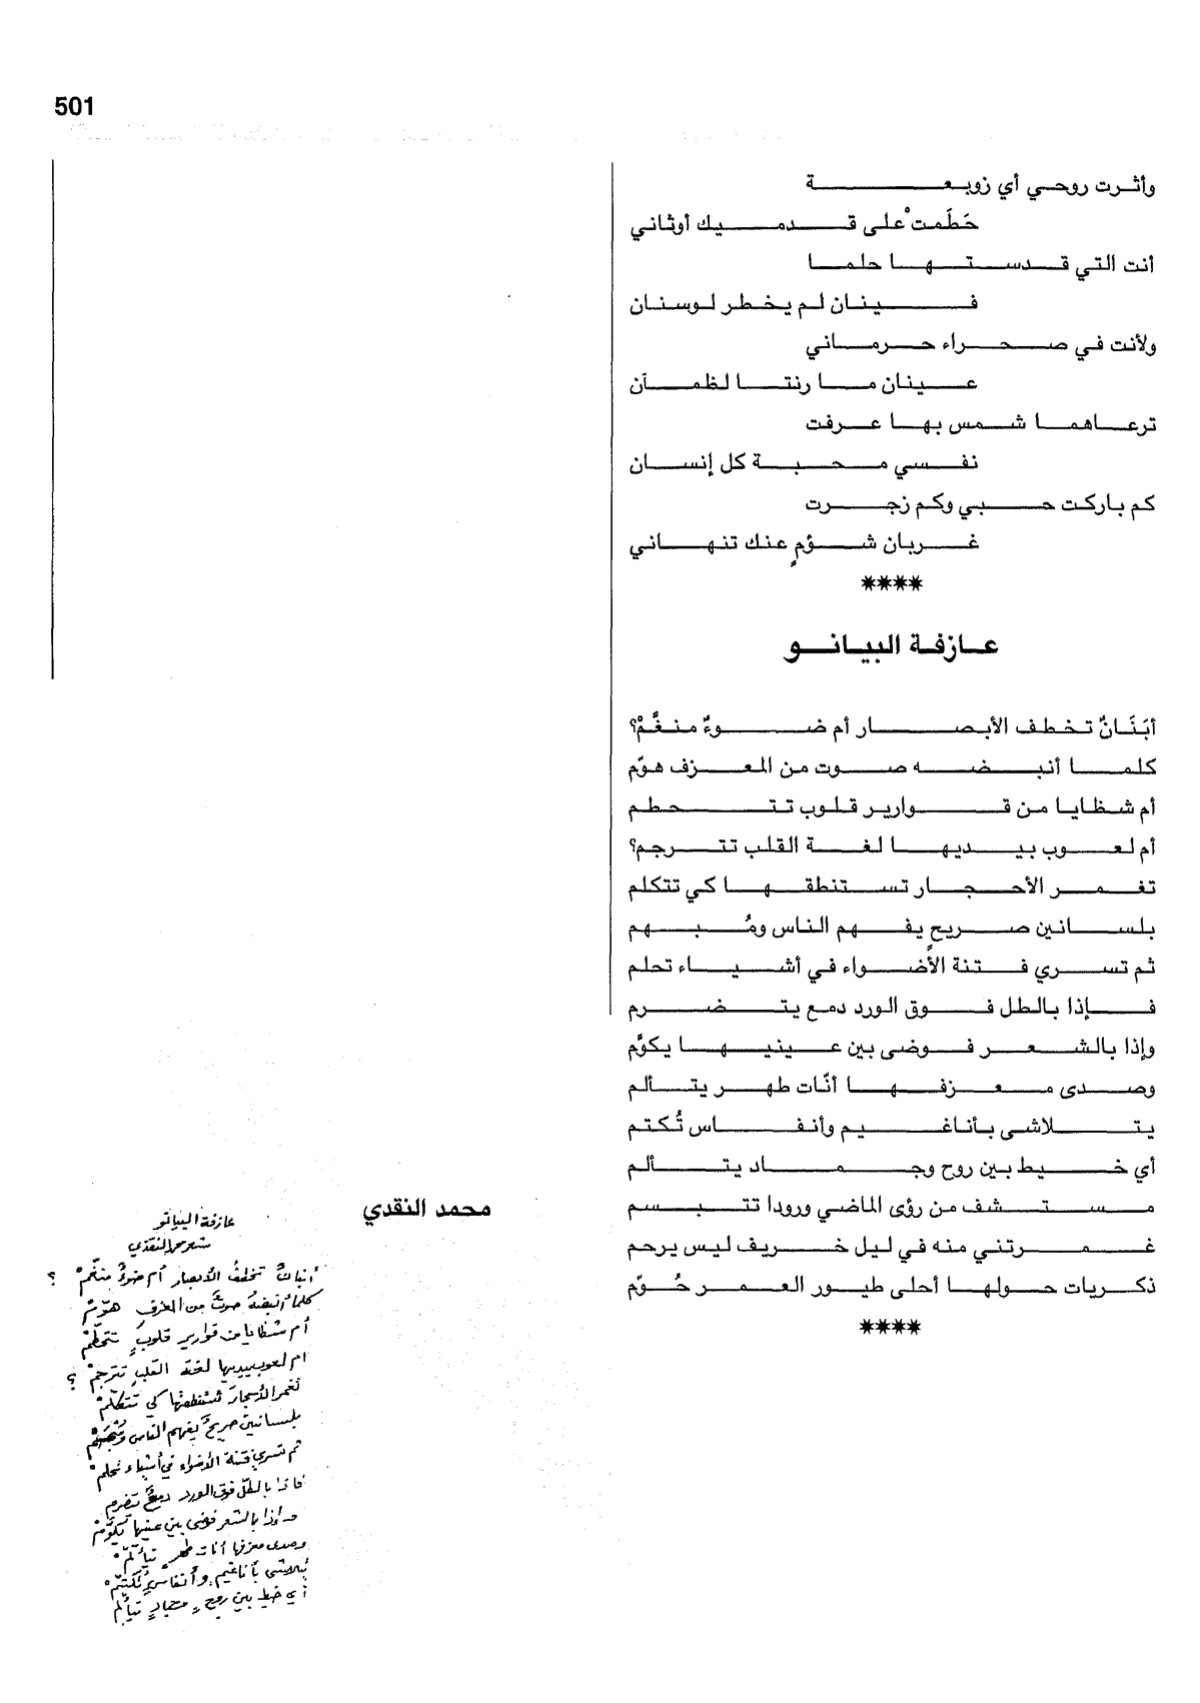 501
وأثرت روحي أي زوبعة
حَطَمتْ على قدميك أوثاني
أنت التي قدستها حلما
فينان لم يخطر لوسنان
ولأنت في صحراء حرماني
عينان ما رنتا لظمآن
ترعاهما شمس بها عرفت
نفسي محبة كل إنسان
كم باركت حبي وكم زجرت
غربان شؤمٍ عنك تنهاني
****
عازفة البيانو
أبَنَانٌ تخطف الأبصار أم ضوءٌ منغَّمْ؟
كلما أنبضه صوت من المعزف هوّم
أم شظايا من قوارير قلوب تتحطم
أم لعوب بيديها لغة القلب تترجم؟
تغمر الأحجار تستنطقها كي تتكلم
بلسانين صريحٍ يفهم الناس ومُبهم
ثم تسري فتنة الأضواء في أشياء تحلم
فإذا بالطل فوق الورد دمع يتضرم
وإذا بالشعر فوضى بين عينيها يكوَّم
وصدى معزفها أنّات طهر يتألم
يتلاشى بأناغيم وأنفاس تُكتم
أي خيط بين روح وجماد يتألم
مستشف من رؤى الماضي ورودا تتبسم
غمرتني منه في ليل خريف ليس يرحم
ذكريات حولها أحلى طيور العمر حُوّم
****
محمد النقدي
عازفة البيانو
شعر محمد النقدي
أبنانٌ تخطفُ الأبصار أم ضوءٌ منغّمْ ؟
كلما أنبضهُ صوتٌ من المعزف هوّمْ
أم شظايا من قوارير قلوبٍ تتحطّمْ
ام لعوب بيديها لغة القلب تترجمْ ؟
تغمر الأحجارَ تستنطقها كي تتكلّمْ
بلسانين صريحٍ يفهم الناس ومُبهمْ
ثم تسري فتنة الأضواء في أشياء تحلمْ
فاذا بالطلّ فوق الورد دمعٌ يتضرم
واذا بالشعر فوضى بين عينيها تكوّمْ
وصدى معزفها أنات طهرٍ يتألّمْ
يتلاشى بأناغيم وأنفاسٍ تُكتّمْ
أي خيط بين روحٍ وجمادٍ يتألم